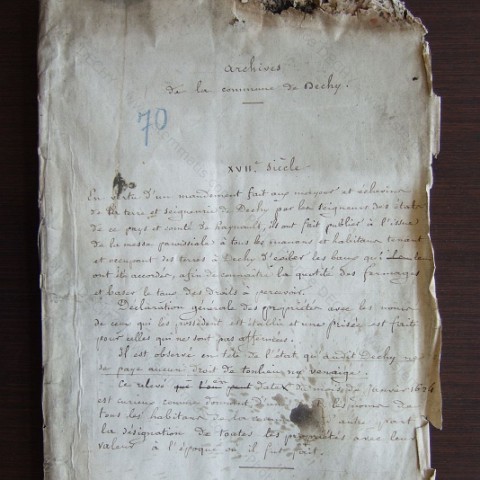 Archives
de la commune de Dechy.
70
XVII.e Siècle
En vertu d'un mandement fait aux mayeur et échevins
de la terre et seigneurie de Dechy par les seigneurs des états
de ce pays et comté de haynault, ils ont fait publier à l'issue
de la messe paroissiale à tous les manans et habitans tenant
et occupant des terres à Dechy d'exiber les baux qui
ont été accordés, afin de connaître la quotité des fermages
et baser le taux des droits à percevoir.
Déclaration générale des propriétés avec les noms
de ceux qui les possèdent est établie et une prisée est faite
pour celles qui ne sont pas affermées.
Il est observé en tête de l'état qu'audit Dechy
se paye aucun droit de tonlieu ny venaige.
Ce relevé daté du mois de Janvier
est curieux comme donnant les noms de
tous les habitans de la
la désignation de toutes les propriétés avec leur
valeur à l'époque où il fut fait.